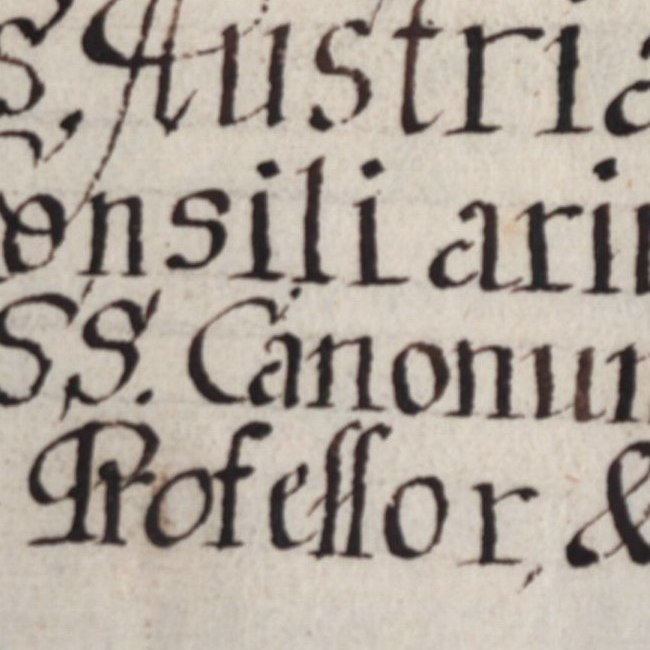 s, Austria
Consiliariu
SS. Canonum
Professor, &